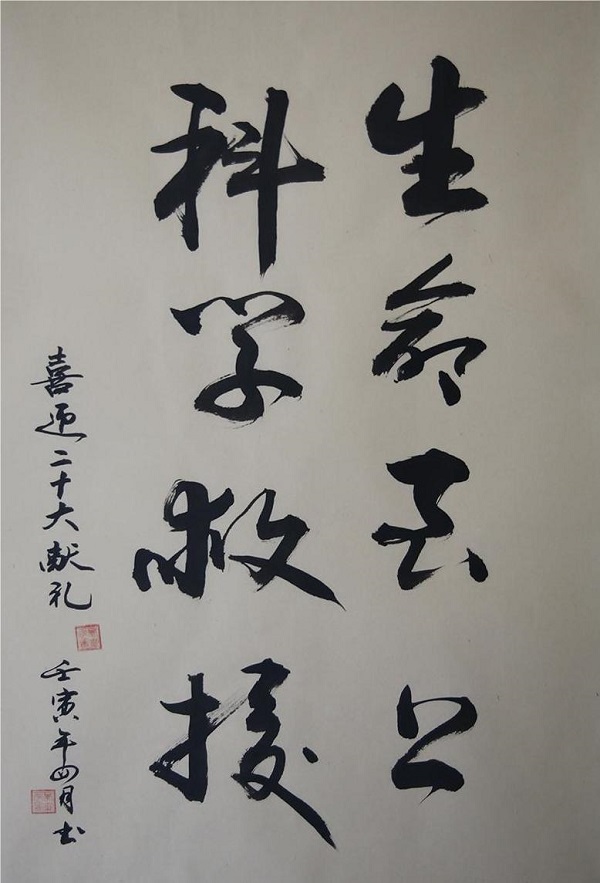 生命至上
科学救援
喜迎二十大献礼
壬寅年四月书